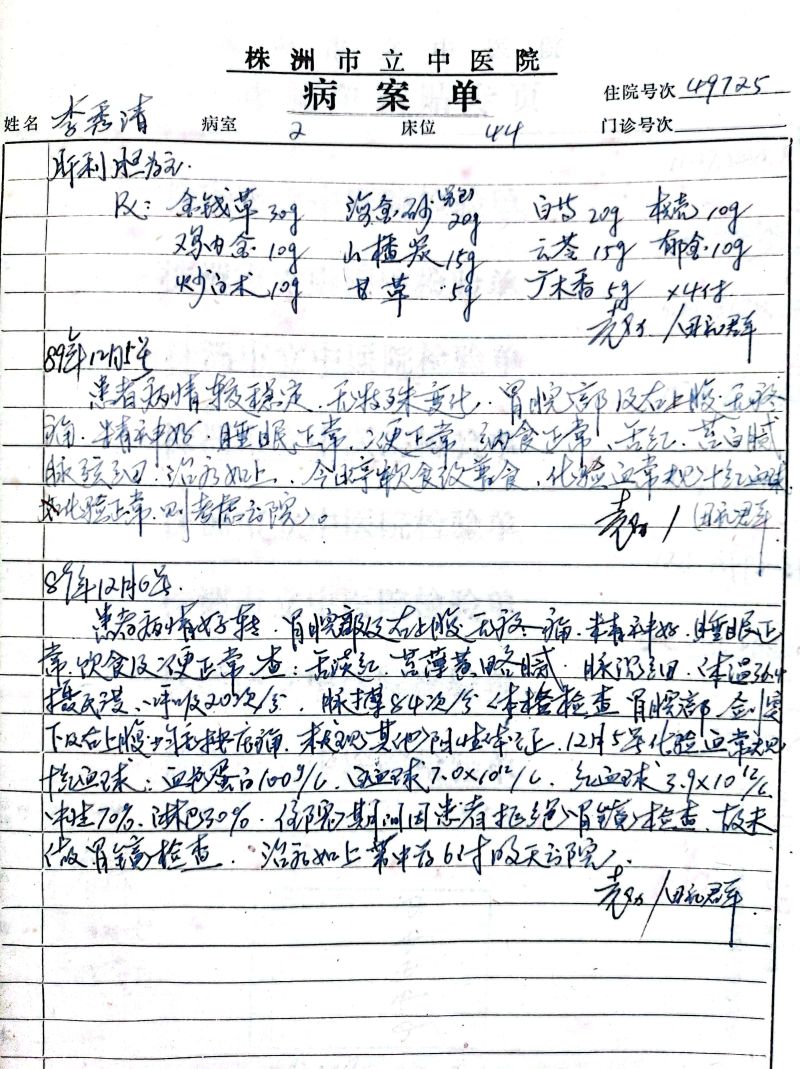 株洲市立中医院
病案单
住院号次 49725
姓名 李秀清 病室 2 床位 44 门诊号次
肝利胆为主.
Rx: 金钱草30g 海金砂20g 白芍20g 枳壳10g
鸡内金10g 山楂炭15g 云苓15g 郁金10g
炒白术10g 甘草5g 广木香5g ×4付
89年12月5号
患者病情较稳定.无特殊变化.胃脘部及右上腹无疼
痛.精神好.睡眠正常.二便正常.纳食正常、舌红.苔白腻
脉弦细.治疗如上.今日享饮食改善食.化验血常规十红血球
如化验正常.则考虑出院。
89年12月6号
患者病情好转.胃脘部及右上腹无疼痛.精神好.睡眠正
常.饮食及二便正常.查:舌淡红.苔薄黄略腻.脉沉细.体温36.4
摄氏度、呼吸20次/分.脉搏84次/分 体格检查胃脘部剑突
下及右上腹少许按压痛.未发现其他阳性体征.12月5号化验血常规
十红血球:血红蛋白100g/L.白血球7.0×10¹²/L.红血球3.9×10¹²/L
中性70%.淋巴30%.住院期间因患者拒绝胃镜检查.故未
做胃镜检查.治疗如上带中药6付明天出院.